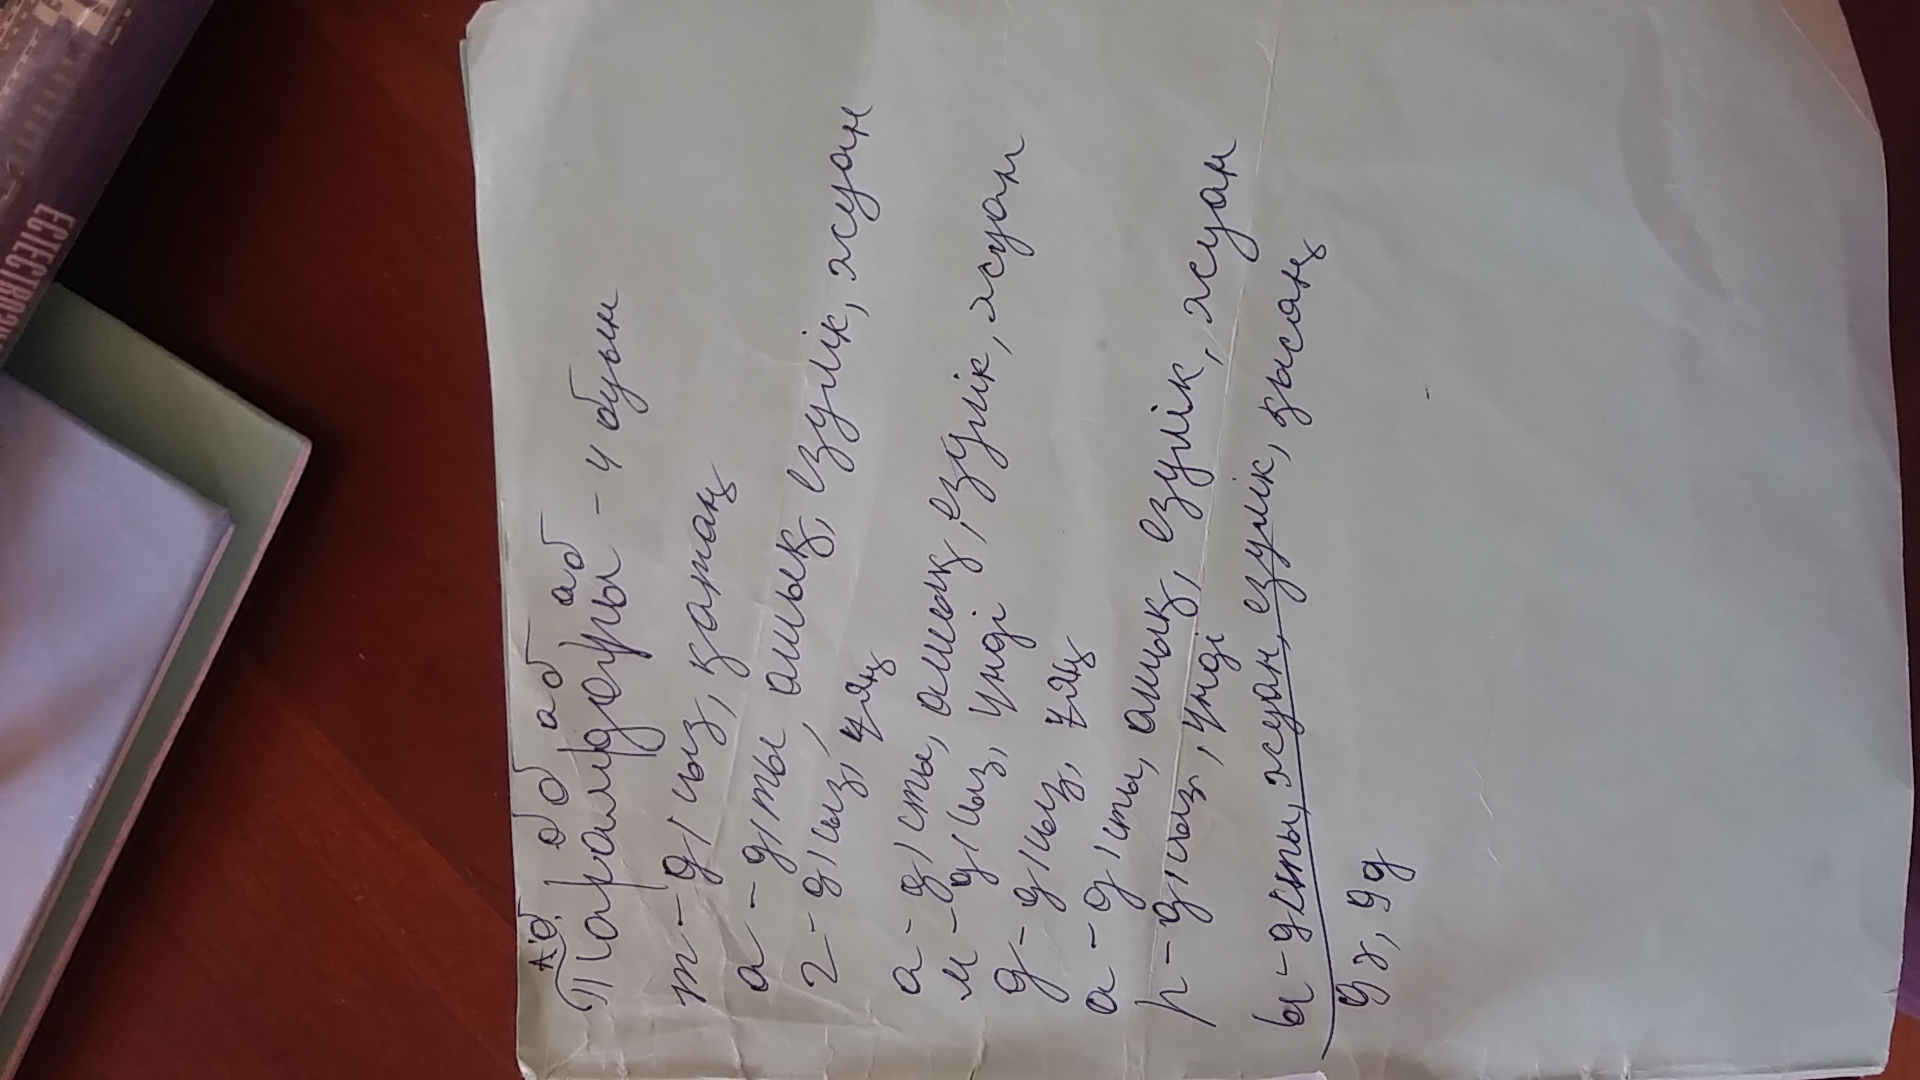 А.б. бб аб аб
Тағамдары - 4 буын
т - д/сыз, қатаң
а - д/ты ашық, езулік, жуан
ғ - д/сыз, ұяң
а - д/сты, ашық, езулік, жуан
м - д/сыз, үнді
д - д/сыз, ұяң
а - д/сты, ашық, езулік, жуан
р - д/сыз, үнді
ы - дсты, жуан, езулік, қысаң
9ә, 9д